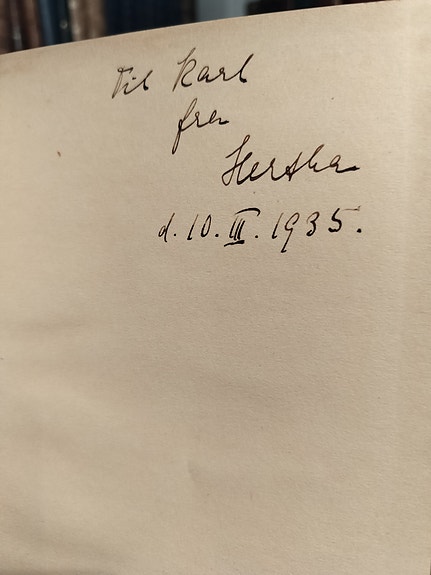 Til Karl
fra
Hertha
d. 10. III. 1935.